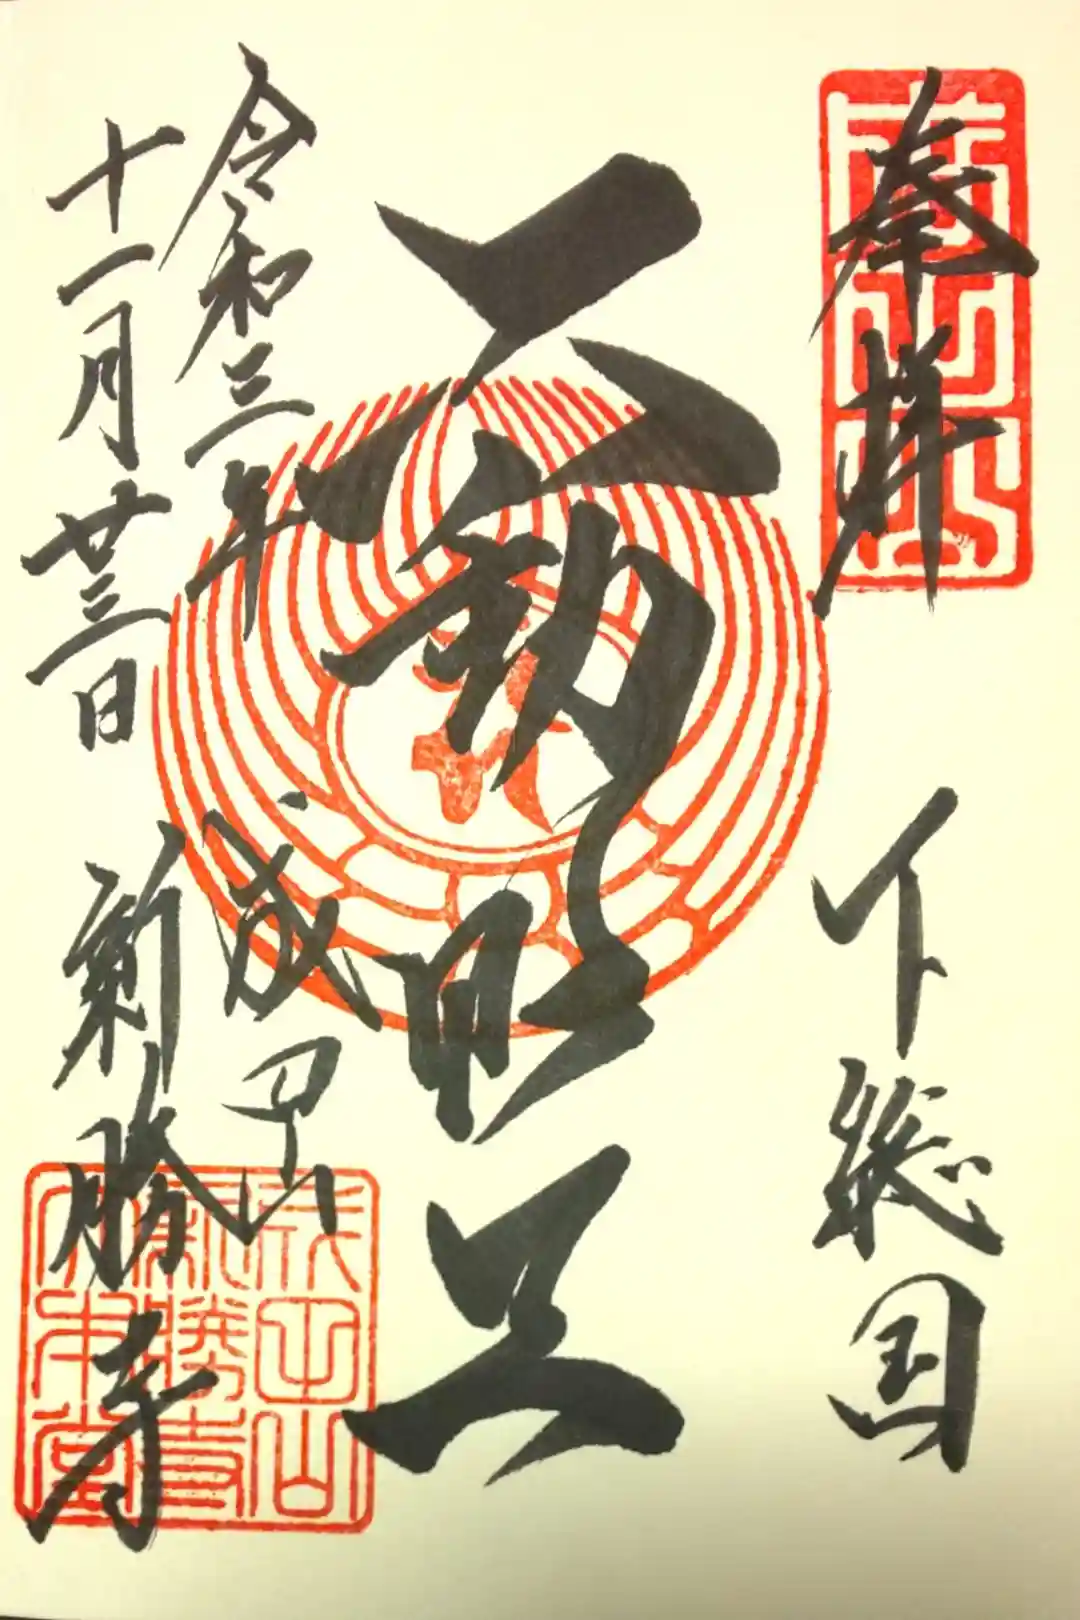 奉拝
下総国
不動明王
令和三年
十一月廿三日
成田山
新勝寺
成田山
新勝寺
大本堂